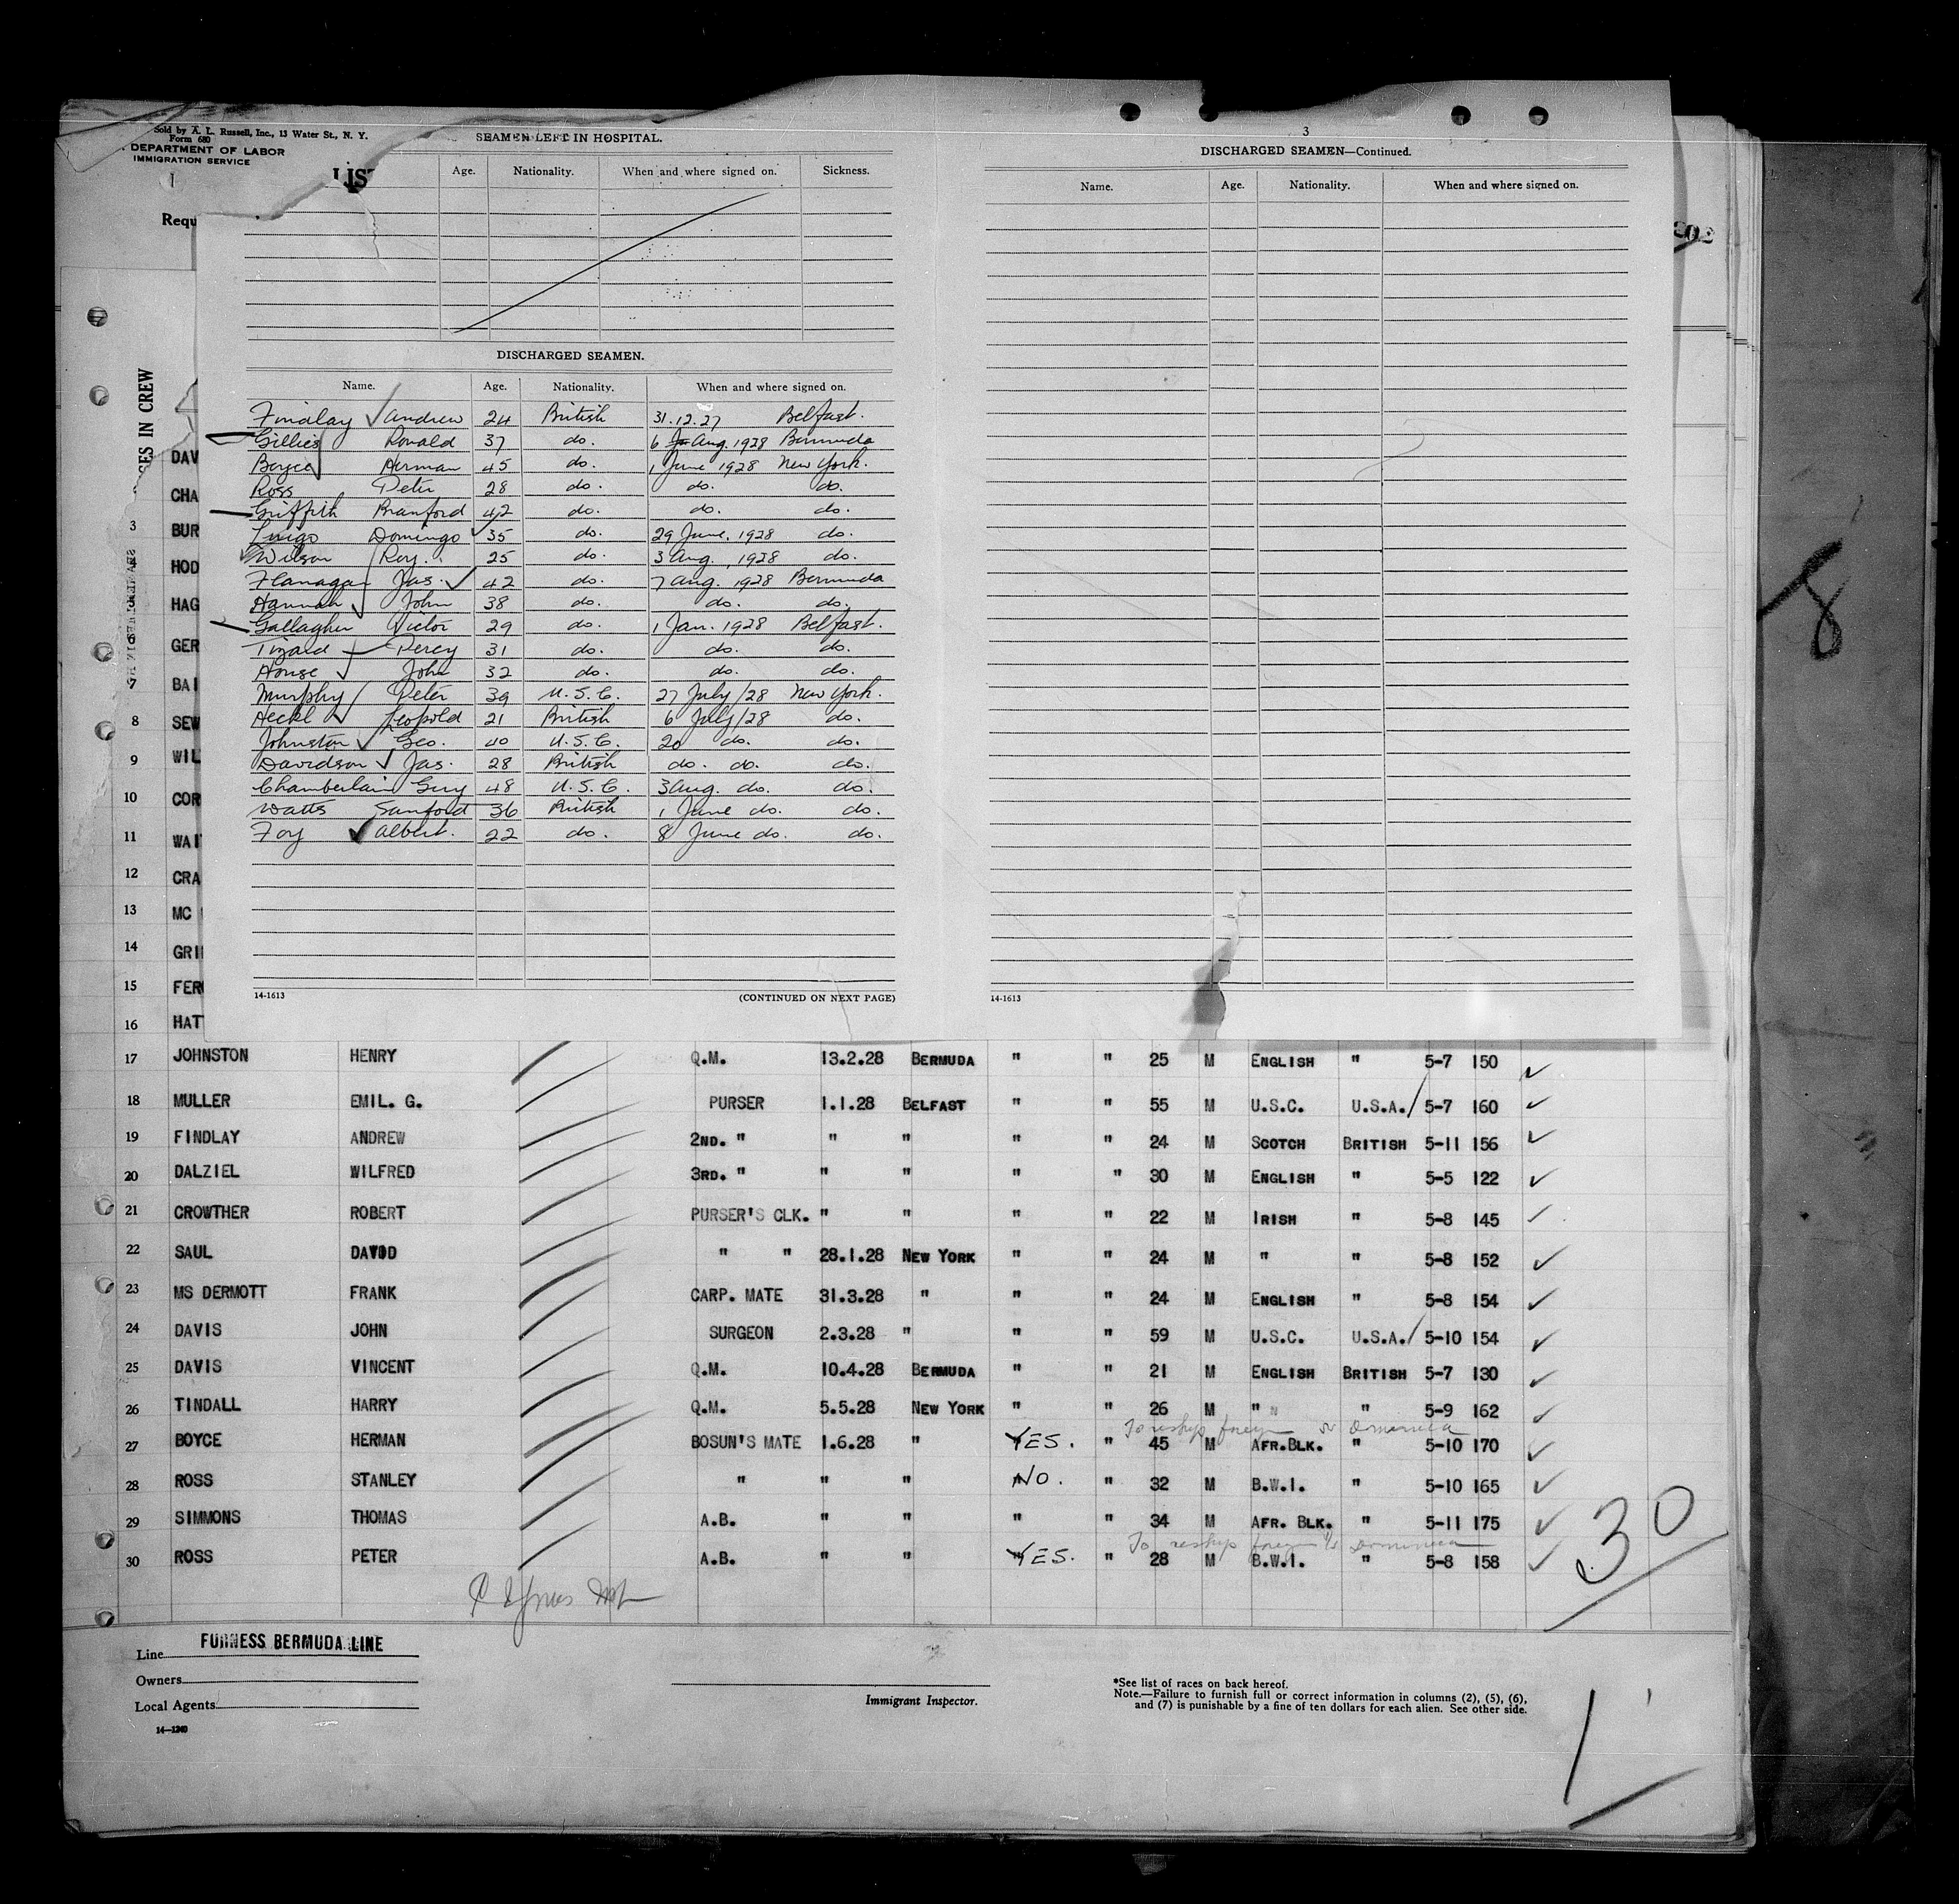 Sold by A. L. Russell, Inc., 13 Water St., N. Y.
Form 680
DEPARTMENT OF LABOR
IMMIGRATION SERVICE
LIST
Requ
SES IN CREW
SEAMEN LEFT IN HOSPITAL.
Age. Nationality. When and where signed on. Sickness.
DISCHARGED SEAMEN.
Name. Age. Nationality. When and where signed on.
Findlay Andrew 24 British 31.12.27 Belfast.
Gillies Ronald 37 do. 6 Aug. 1928 Bermuda
Boyce Herman 45 do. 1 June 1928 New York.
Ross Peter 28 do. do. do.
Griffith Branford 42 do. do. do.
Domingo 35 do. 29 June. 1928 do.
Wilson Roy. 25 do. 3 Aug. 1928 do.
Flanagan Jas. 42 do. 7 Aug. 1928 Bermuda
Hannah John 38 do. do. do.
Gallagher Victor 29 do. 1 Jan. 1928 Belfast.
Tizard Percy 31 do. do. do.
House John 32 do. do. do.
Murphy Peter 39 U.S.C. 27 July/28 New York.
Heckl Leopold 21 British 6 July/28 do.
Johnston Geo. 40 U.S.C. 20 do. do.
Davidson Jas. 28 British do. do. do.
Chamberlain Guy 48 U.S.C. 3 Aug. do. do.
Watts Sanford 36 British 1 June do. do.
Foy Albert. 22 do. 8 June do. do.
14-1613 (CONTINUED ON NEXT PAGE)
3
DISCHARGED SEAMEN—Continued.
Name. Age. Nationality. When and where signed on.
14-1613
202
8
DAV
CHA
3 BUR
HOD
HAG
GER
7 BAI
8 SEW
9 WIL
10 COR
11 WAI
12 CRA
13 MC
14 GRI
15 FER
16 HAT
17 JOHNSTON HENRY Q.M. 13.2.28 BERMUDA " " 25 M ENGLISH " 5-7 150
18 MULLER EMIL. G. PURSER 1.1.28 BELFAST " " 55 M U.S.C. U.S.A. 5-7 160
19 FINDLAY ANDREW 2ND. " " " " " 24 M SCOTCH BRITISH 5-11 156
20 DALZIEL WILFRED 3RD. " " " " " 30 M ENGLISH " 5-5 122
21 CROWTHER ROBERT PURSER'S CLK. " " " " 22 M IRISH " 5-8 145
22 SAUL DAVID " " 28.1.28 NEW YORK " " 24 M " " 5-8 152
23 MS DERMOTT FRANK CARP. MATE 31.3.28 " " " 24 M ENGLISH " 5-8 154
24 DAVIS JOHN SURGEON 2.3.28 " " " 59 M U.S.C. U.S.A. 5-10 154
25 DAVIS VINCENT Q.M. 10.4.28 BERMUDA " " 21 M ENGLISH BRITISH 5-7 130
26 TINDALL HARRY Q.M. 5.5.28 NEW YORK " " 26 M " " " 5-9 162
To reship foreign Dominica
27 BOYCE HERMAN BOSUN'S MATE 1.6.28 " YES. " 45 M AFR.BLK. " 5-10 170
28 ROSS STANLEY " " " NO. " 32 M B.W.I. " 5-10 165
29 SIMMONS THOMAS A.B. " " " " 34 M AFR. BLK. " 5-11 175
To reship foreign Dominica
30 ROSS PETER A.B. " " YES. " 28 M B.W.I. " 5-8 158
30
Line FURNESS BERMUDA LINE
Owners
Local Agents
14—1240
Immigrant Inspector.
*See list of races on back hereof.
Note.—Failure to furnish full or correct information in columns (2), (5), (6),
and (7) is punishable by a fine of ten dollars for each alien. See other side.